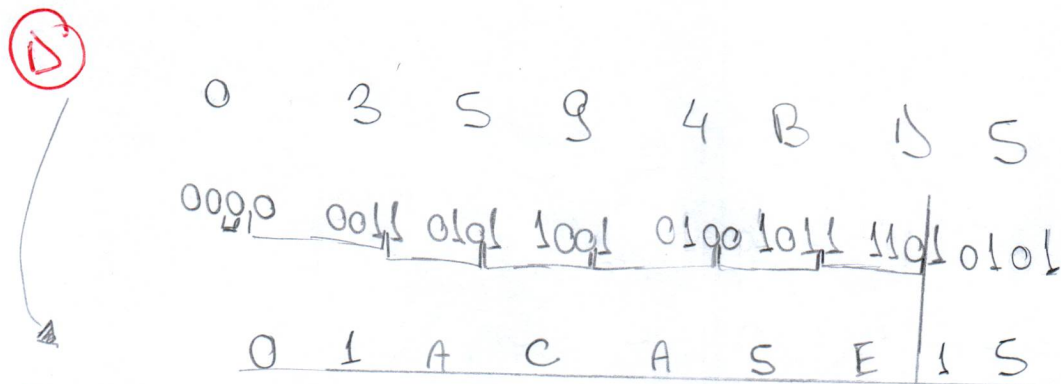 D
0 3 5 9 4 B D 5
0000 0011 0101 1001 0100 1011 1101 0101
0 1 A C A 5 E 1 5